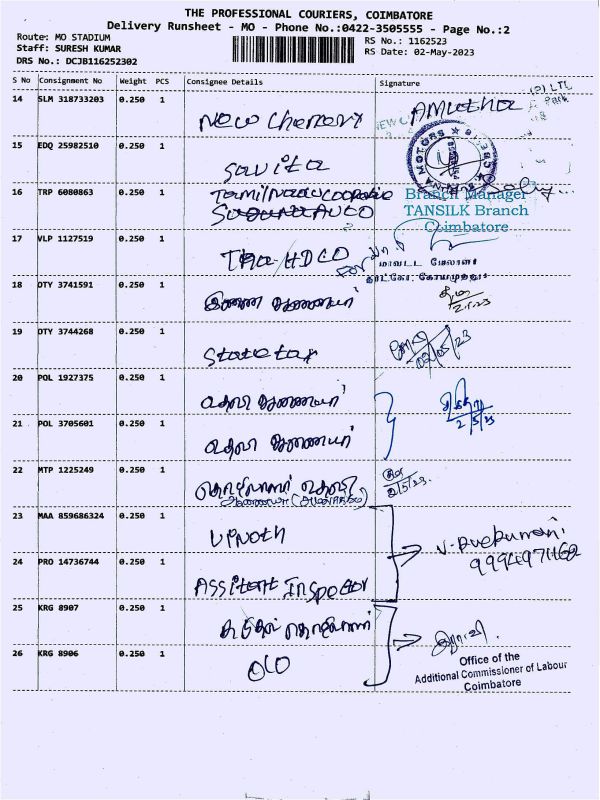 THE PROFESSIONAL COURIERS, COIMBATORE
Delivery Runsheet - MO - Phone No.:0422-3505555 - Page No.:2
Route: MO STADIUM
Staff: SURESH KUMAR
DRS No.: DCJB116252302
RS No.: 1162523
RS Date: 02-May-2023
S No Consignment No Weight PCS Consignee Details Signature
14 SLM 318733203 0.250 1
Amutha
15 EDQ 25982510 0.250 1
Savita
MOTORS
16 TRP 6080863 0.250 1
Tamilnadu Cooperative
Branch Manager
TANSILK Branch
Coimbatore
17 VLP 1127519 0.250 1
THADCO
மாவட்ட மேலாளர்
தாட்கோ, கோயமுத்தூர்
18 OTY 3741591 0.250 1
இணை ஆணையர்
2.5.23
19 OTY 3744268 0.250 1
State tax
02/05/23
20 POL 1927375 0.250 1
உதவி ஆணையர்
2/5/23
21 POL 3705601 0.250 1
உதவி ஆணையர்
22 MTP 1225249 0.250 1
தொழிலாளர் உதவி
ஆணையர்
2/5/23
23 MAA 859686324 0.250 1
9994971162
24 PRO 14736744 0.250 1
Assitant Inspector
25 KRG 8907 0.250 1
26 KRG 8906 0.250 1
Office of the
Additional Commissioner of Labour
Coimbatore